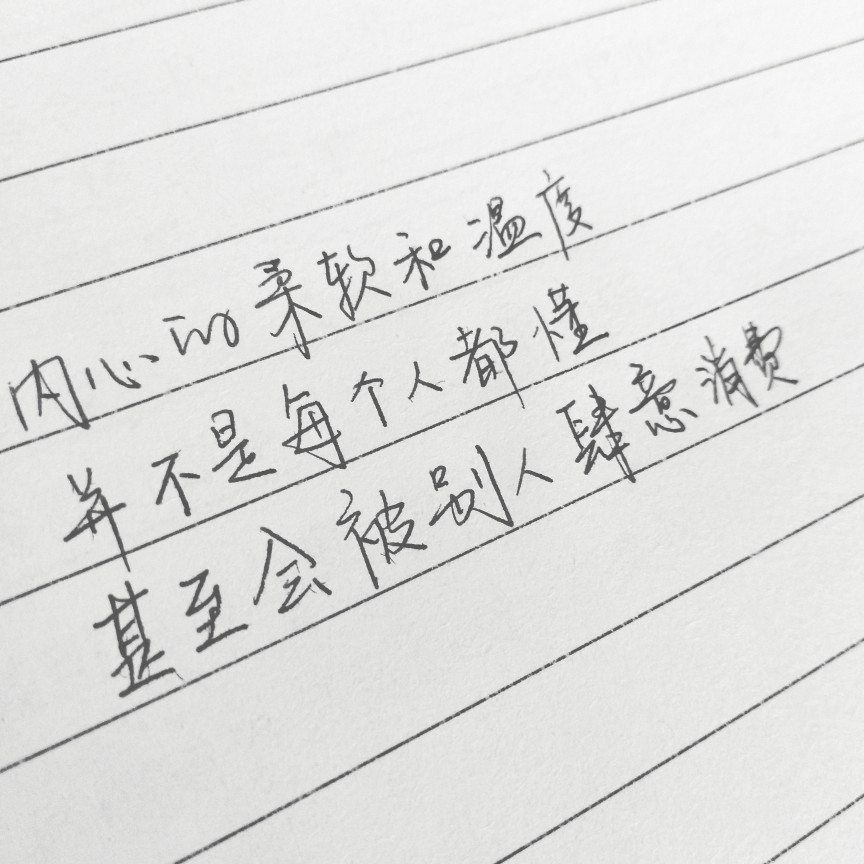 内心的柔软和温度
并不是每个人都懂
甚至会被别人肆意消费